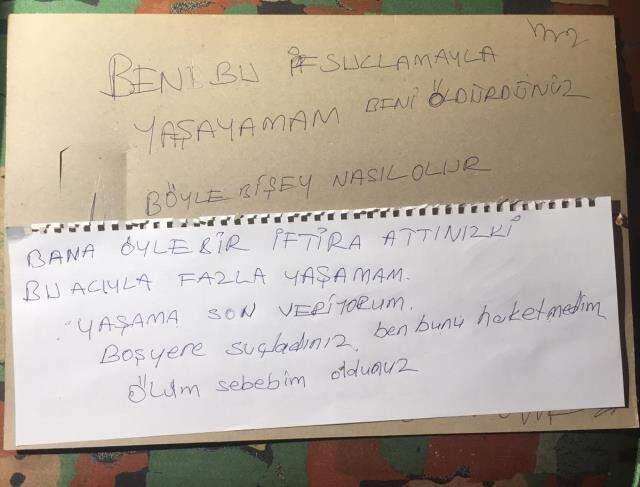 BENİ BU İF SUCLAMAYLA
YAŞAYAMAM BENİ ÖLDÜRDÜNÜZ
BÖYLE BİŞEY NASIL OLUR
BANA ÖYLE BİR İFTİRA ATTINIZKİ
BU ACIYLA FAZLA YAŞAMAM.
YAŞAMA SON VERİYORUM.
BOŞYERE suçladınız. ben bunu haketmedim
ÖLÜM sebebim oldunuz